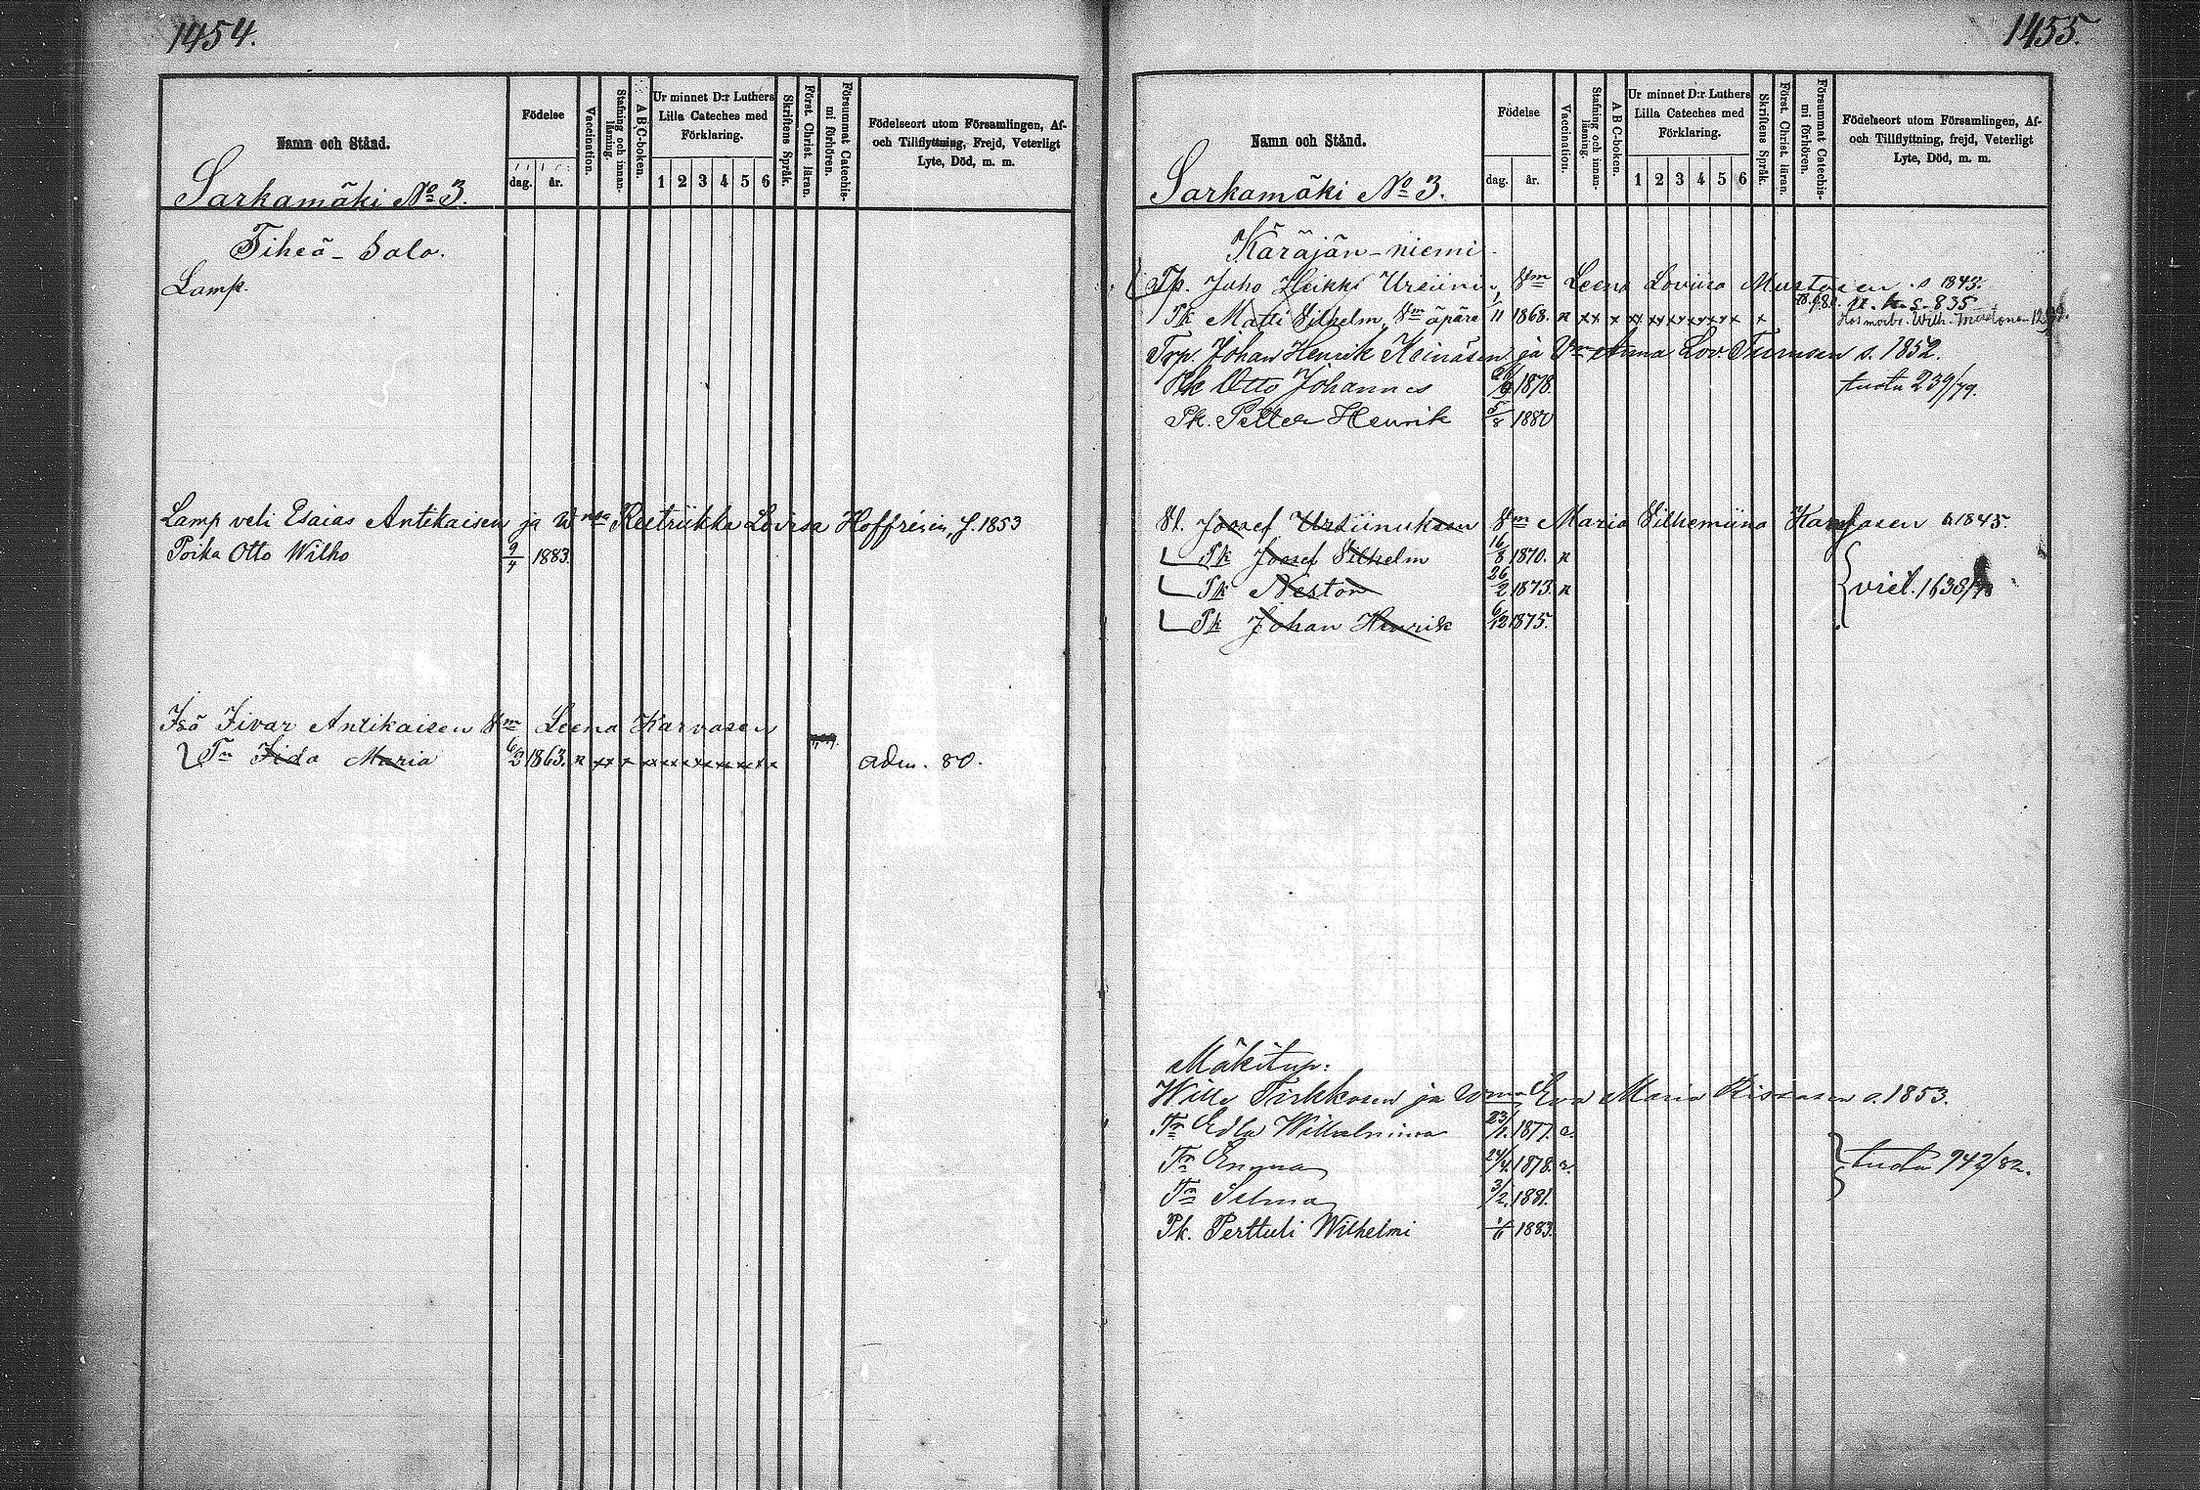 1454.
Namn och Stånd.
Födelse
dag. år.
Vaccination.
Stafning och innanläsning.
A B C-boken.
Ur minnet D:r Luthers Lilla Cateches med Förklaring.
1 2 3 4 5 6
Skriftens Språk.
Först. Christ. läran.
Försummat Catechismi förhören.
Födelseort utom Församlingen, Af- och Tillflyttning, Frejd, Veterligt Lyte, Död, m. m.
Sarkamäki No 3.
Tiheä-Salo.
Lamp.
Lamp veli Esaias Antikaisen ja Wmsa Reetriikka Lovisa Hoffrén, s. 1853
Poika Otto Wilho 9/4 1883.
Isä Iivar Antikaisen Vm Leena Karvasen
Tr Iida Maria 6/2 1863. x xx x xx xx xx xx xx x x adm. 80.
1455.
Namn och Stånd.
Födelse
dag. år.
Vaccination.
Stafning och innanläsning.
A B C-boken.
Ur minnet D:r Luthers Lilla Cateches med Förklaring.
1 2 3 4 5 6
Skriftens Språk.
Först. Christ. läran.
Försummat Catechismi förhören.
Födelseort utom Församlingen, Af- och Tillflyttning, frejd, Veterligt Lyte, Död, m. m.
Sarkamäki No 3.
Käräjän-niemi.
Tp. Juho Heikki Ursiinin, Vm Leena Loviisa Mustosen s 1843.
Pk Matti Vilhelm, Vm äpärä 1/11 1868. x xx x xx xx xx xx xx x x
Trp. Johan Henrik Keinäsen ja Vm Anna Lov. Turusen s. 1852.
Pk Otto Johannes 1878. tuotu 239/79.
Pk. Petter Henrik 5/8 1880
Vl. Josef Ursiinuksen Vm Maria Vilhemiina Karvasen s. 1845.
Pk Josef Vilhelm 16/8 1870. x
Pk Nestor 26/2 1873. x viet. 1638/
Pk Johan Henrik 6/12 1875.
Mäkitup:
Wille Tirkkosen ja Wman Eva Maria Rissasen s. 1853.
Tr Edla Wilhelmina 23/1. 1877.
Tr Emma 24/4. 1878. tuotu 942/82.
Tr Selma 3/2. 1881.
Pk. Perttuli Wilhelmi 1883.